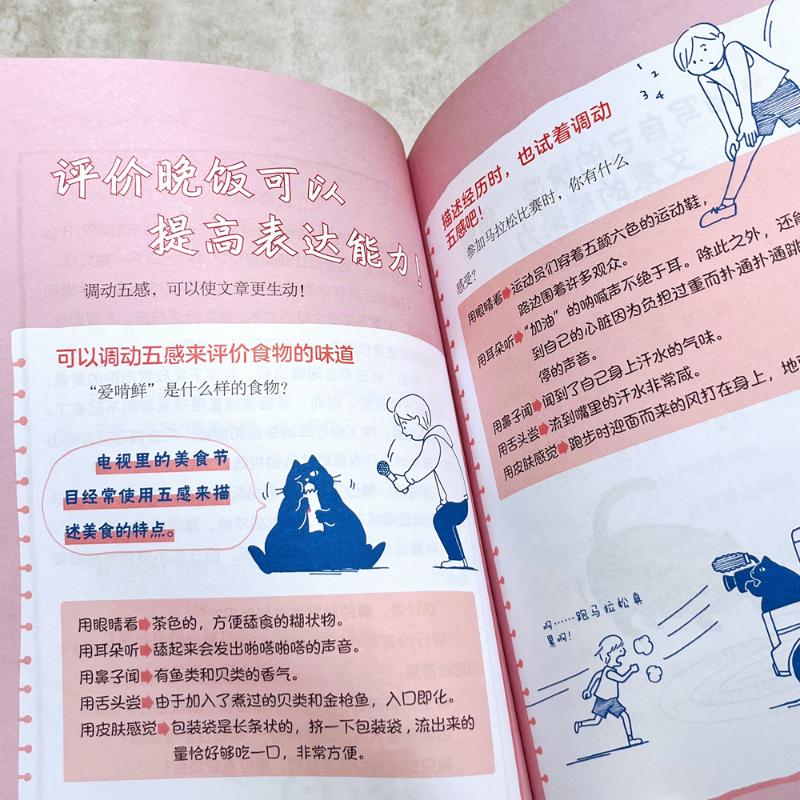 评价晚饭可以
提高表达能力！
调动五感，可以使文章更生动！
可以调动五感来评价食物的味道
“爱啃鲜”是什么样的食物？
电视里的美食节
目经常使用五感来描
述美食的特点。
用眼睛看➡茶色的，方便舔食的糊状物。
用耳朵听➡舔起来会发出啪嗒啪嗒的声音。
用鼻子闻➡有鱼类和贝类的香气。
用舌头尝➡由于加入了煮过的贝类和金枪鱼，入口即化。
用皮肤感觉➡包装袋是长条状的，挤一下包装袋，流出来的
量恰好够吃一口，非常方便。
1
2
3 4
描述经历时，也试着调动
五感吧！
参加马拉松比赛时，你有什么
感受？
用眼睛看➡运动员们穿着五颜六色的运动鞋，
路边围着许多观众。
用耳朵听➡“加油”的呐喊声不绝于耳。除此之外，还能
到自己的心脏因为负担过重而扑通扑通跳
停的声音。
用鼻子闻➡闻到了自己身上汗水的气味。
用舌头尝➡流到嘴里的汗水非常咸。
用皮肤感觉➡跑步时迎面而来的风打在身上，地
啊……跑马拉松真
累啊！